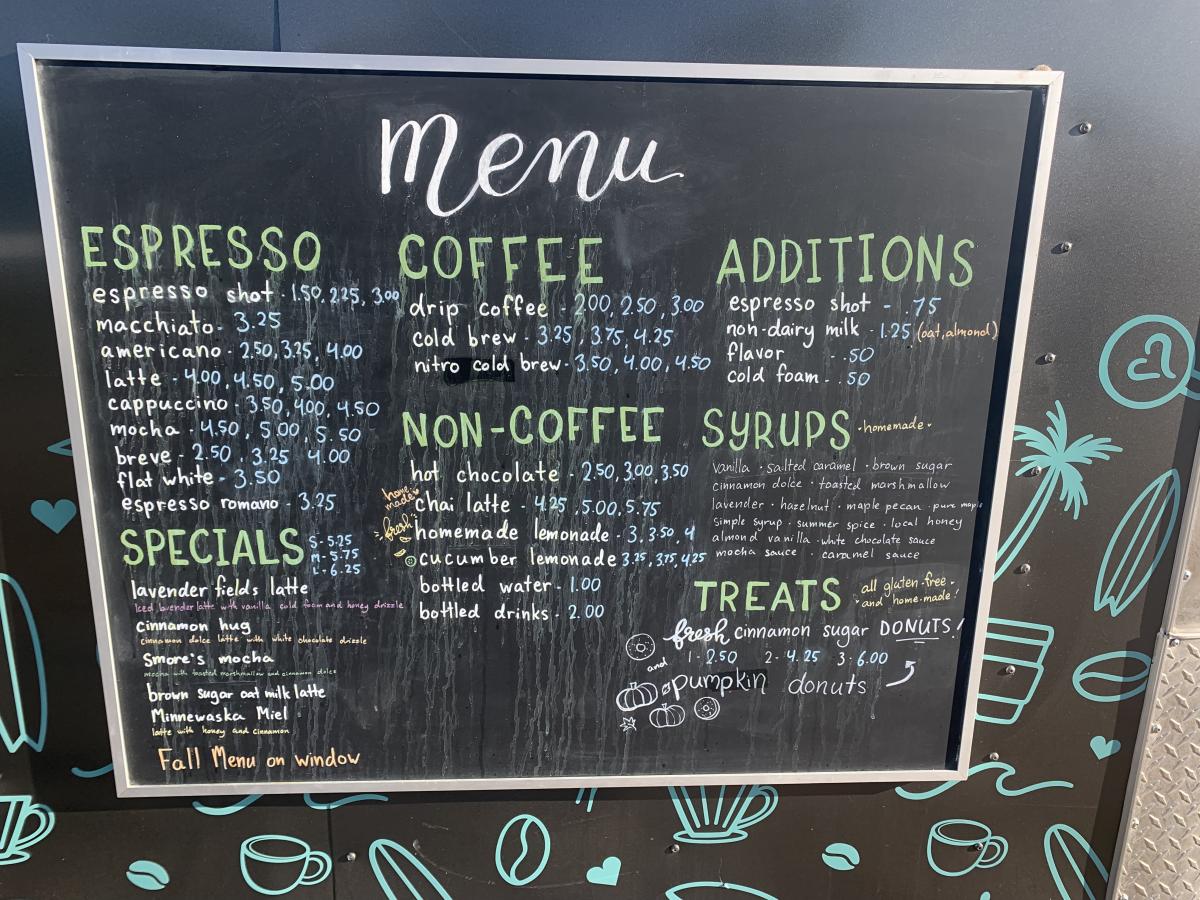 menu
ESPRESSO
espresso shot - 1.50, 2.25, 3.00
macchiato - 3.25
americano - 2.50, 3.25, 4.00
latte - 4.00, 4.50, 5.00
cappuccino - 3.50, 4.00, 4.50
mocha - 4.50, 5.00, 5.50
breve - 2.50, 3.25, 4.00
flat white - 3.50
espresso romano - 3.25
SPECIALS
S - 5.25
M - 5.75
L - 6.25
lavender fields latte
Iced lavender latte with vanilla cold foam and honey drizzle
cinnamon hug
cinnamon dolce latte with white chocolate drizzle
Smore's mocha
mocha with toasted marshmallow and cinnamon dolce
brown sugar oat milk latte
Minnewaska Miel
latte with honey and cinnamon
Fall Menu on window
COFFEE
drip coffee - 2.00, 2.50, 3.00
cold brew - 3.25, 3.75, 4.25
nitro cold brew - 3.50, 4.00, 4.50
NON-COFFEE
hot chocolate - 2.50, 3.00, 3.50
home made
chai latte - 4.25, 5.00, 5.75
fresh
homemade lemonade - 3, 3.50, 4
cucumber lemonade 3.25, 3.75, 4.25
bottled water - 1.00
bottled drinks - 2.00
ADDITIONS
espresso shot - .75
non-dairy milk - 1.25 (oat, almond)
flavor - .50
cold foam - .50
SYRUPS · homemade ·
vanilla · salted caramel · brown sugar
cinnamon dolce · toasted marshmallow
lavender · hazelnut · maple pecan · pure maple
simple syrup · summer spice · local honey
almond vanilla · white chocolate sauce
mocha sauce · caramel sauce
TREATS
all gluten-free
· and home-made!
fresh cinnamon sugar DONUTS!
1 - 2.50 2 - 4.25 3 - 6.00
and
pumpkin donuts